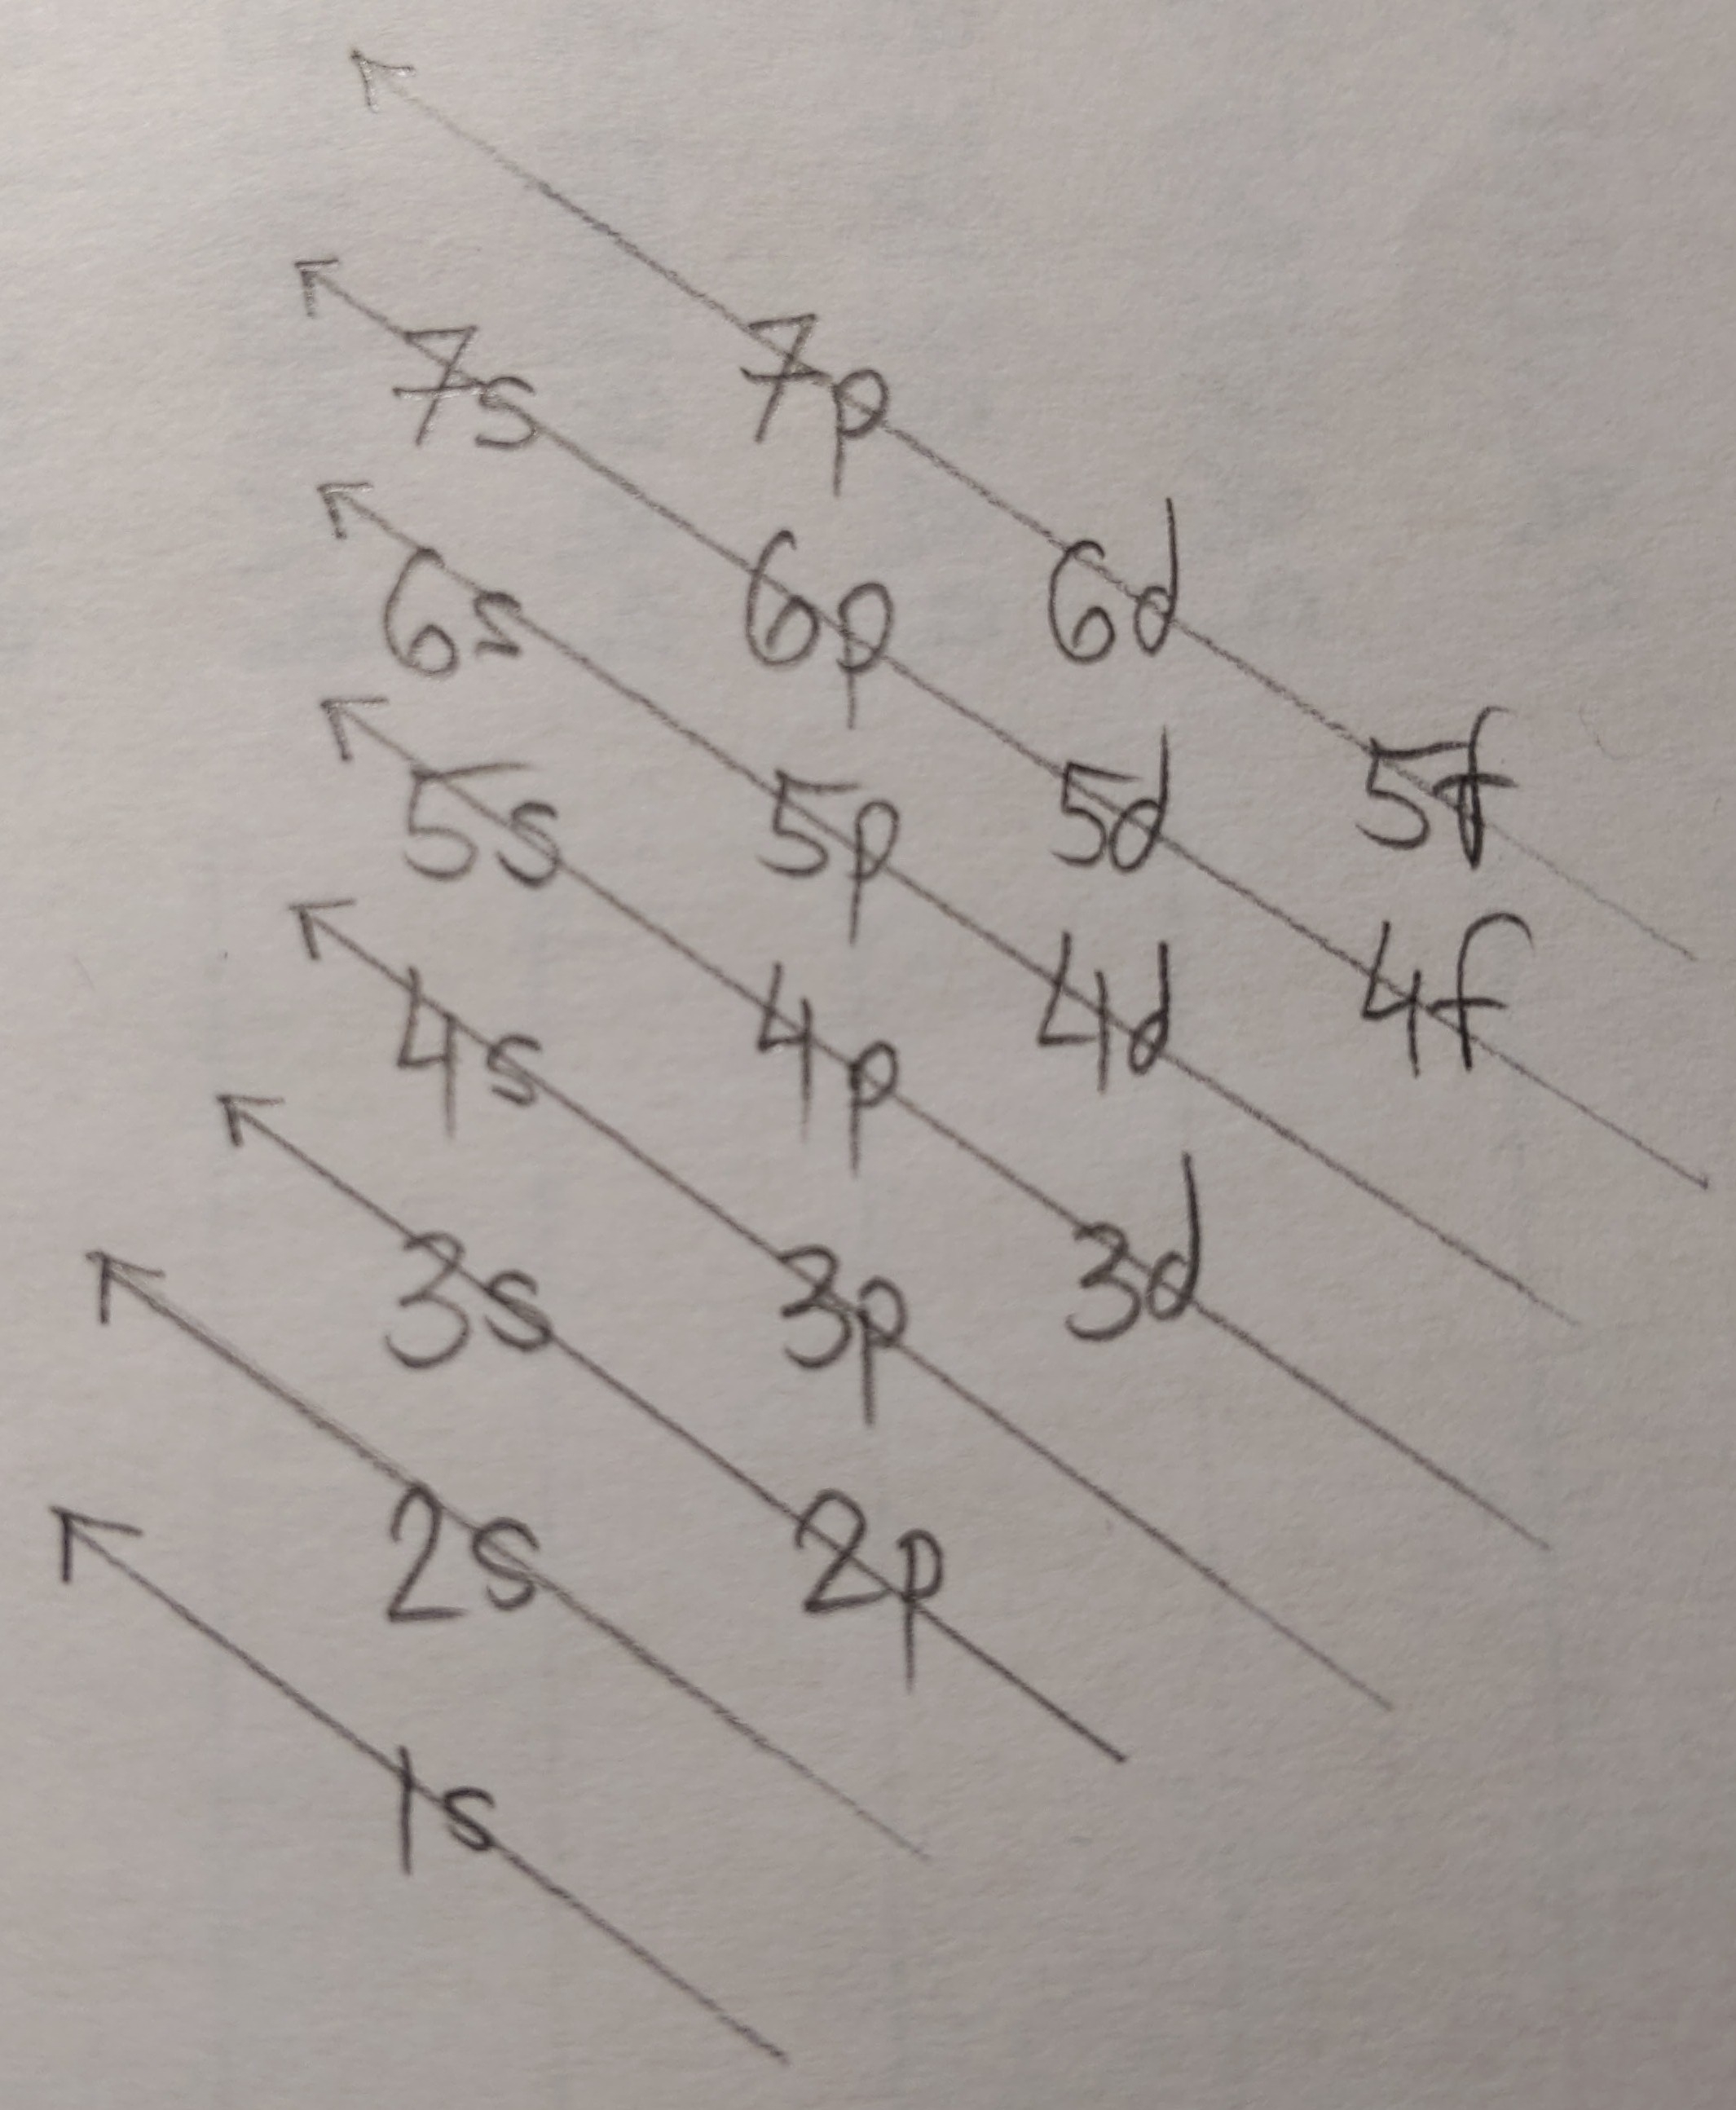 7s 7p
6s 6p 6d
5s 5p 5d 5f
4s 4p 4d 4f
3s 3p 3d
2s 2p
1s